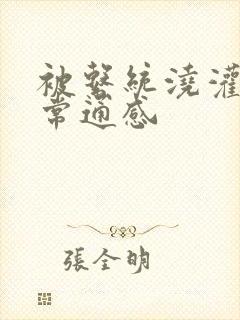 被繫統澆灌
常通感
張全明